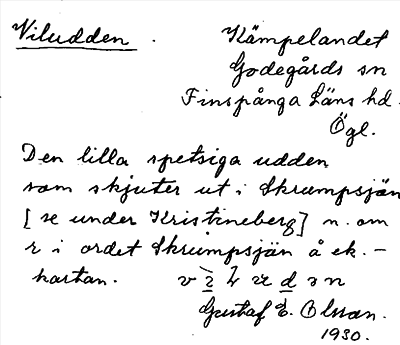 Viludden.
Kämpelandet
Godegårds sn
Finspånga Läns hd.
Ögl.
Den lilla spetsiga udden
som skjuter ut i Skrumpsjän
[se under Kristineberg] n. om
r i ordet Skrumpsjän å ek.-
kartan.
Gustaf E. Olsson.
1930.